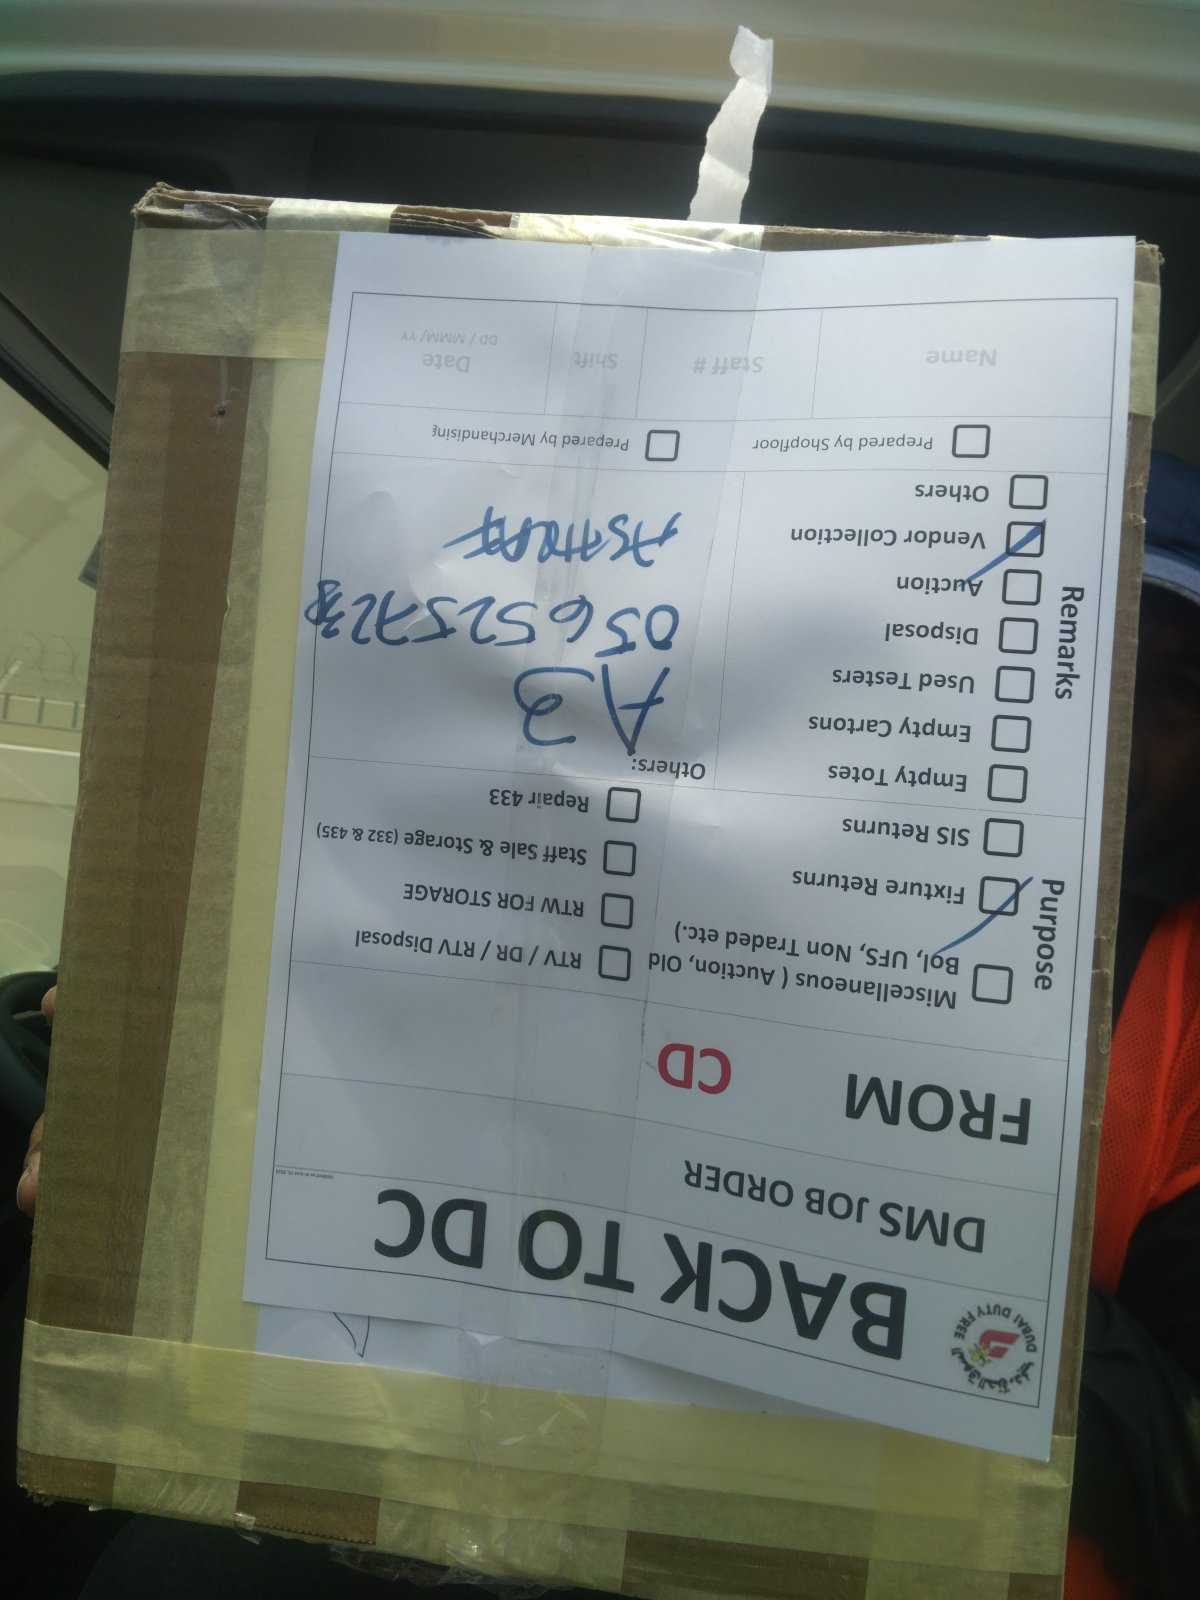 السوق الحرة دبي
DUBAI DUTY FREE
BACK TO DC
DMS JOB ORDER
FROM CD
Purpose
Miscellaneous ( Auction, Old Bol, UFS, Non Traded etc.)
Fixture Returns
SIS Returns
RTV / DR / RTV Disposal
RTW FOR STORAGE
Staff Sale & Storage (332 & 435)
Repair 433
Remarks
Empty Totes
Empty Cartons
Used Testers
Disposal
Auction
Vendor Collection
Others
Others:
A3
056 525 72
Prepared by Shopfloor
Prepared by Merchandising
Name
Staff #
Shift
Date
DD / MMM/ YY